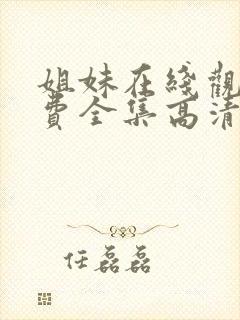 姐妹在綫觀
費全集高清
任磊磊